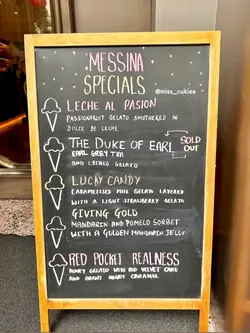 MESSINA
SPECIALS
@miss_cukiee
LECHE AL PASION
PASSIONFRUIT GELATO SMOTHERED IN
DULCE DE LECHE
THE DUKE OF EARL
SOLD
OUT
EARL GREY TEA
AND LYCHEE GELATO
LUCKY CANDY
CARAMELISED MILK GELATO LAYERED
WITH A LIGHT STRAWBERRY GELATO
GIVING GOLD
MANDARIN AND POMELO SORBET
WITH A GOLDEN MANDARIN JELLY
RED POCKET REALNESS
HONEY GELATO WITH RED VELVET CAKE
AND BURNT HONEY CARAMEL